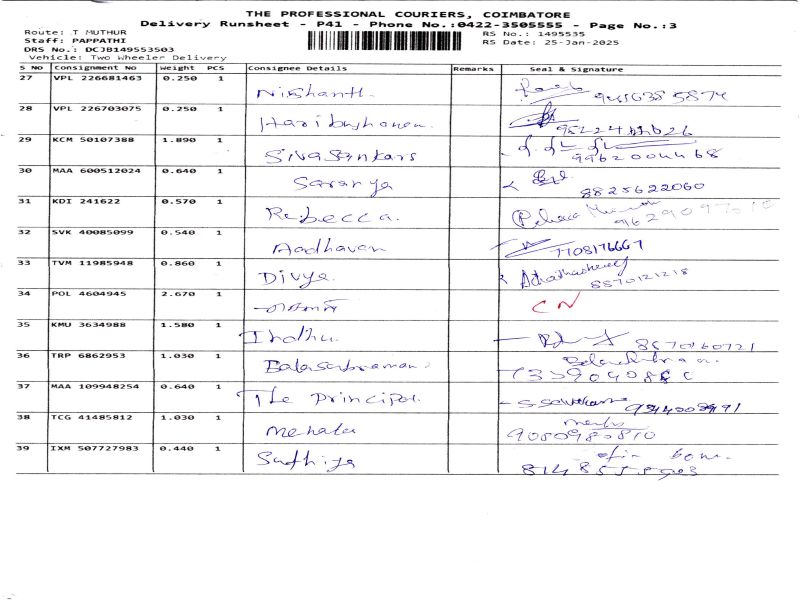 THE PROFESSIONAL COURIERS, COIMBATORE
Delivery Runsheet - P41 - Phone No.:0422-3505555 - Page No.:3
Route: T MUTHUR
Staff: PAPPATHI
DRS No.: DCJB149553503
Vehicle: Two Wheeler Delivery
RS No.: 1495535
RS Date: 25-Jan-2025
S No Consignment No Weight PCS Consignee Details Remarks Seal & Signature
27 VPL 226681463 0.250 1 Nishanth.
28 VPL 226703075 0.250 1
29 KCM 50107388 1.890 1 Sivasankari 9962004468
30 MAA 600512024 0.640 1 Saranya 8825622060
31 KDI 241622 0.570 1 Rebecca.
32 SVK 40085099 0.540 1 Aadhavan 7708176667
33 TVM 11985948 0.860 1 Divya. 8870121218
34 POL 4604945 2.670 1 CN
35 KMU 3634988 1.580 1 Indhu.
36 TRP 6862953 1.030 1
37 MAA 109948254 0.640 1 The Principal.
38 TCG 41485812 1.030 1 9080980810
39 IXM 507727983 0.440 1 Sathiya